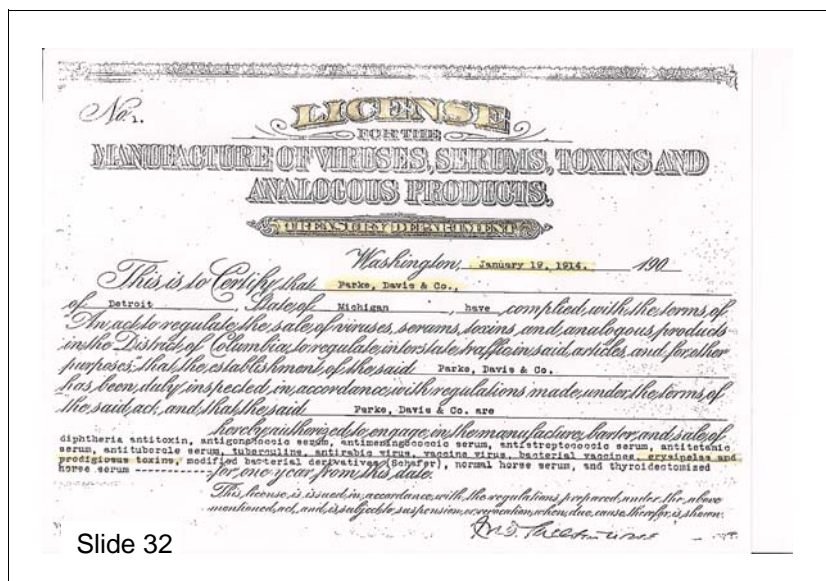 No. 1.
LICENSE
FOR THE
MANUFACTURE OF VIRUSES, SERUMS, TOXINS AND
ANALOGOUS PRODUCTS.
TREASURY DEPARTMENT
Washington, January 19, 1914. 190
This is to Certify that Parke, Davis & Co.,
of Detroit State of Michigan, have complied with the terms of
"An act to regulate the sale of viruses, serums, toxins, and analogous products
in the District of Columbia, to regulate interstate traffic in said articles, and for other
purposes," that the establishment of the said Parke, Davis & Co.
has been duly inspected in accordance with regulations made under the terms of
the said act, and that the said Parke, Davis & Co. are
hereby authorized to engage in the manufacture, barter, and sale of
diphtheria antitoxin, antigonococcic serum, antimeningococcic serum, antistreptococcic serum, antitetanic
serum, antitubercle serum, tuberculins, antirabic virus, vaccine virus, bacterial vaccines, erysipelas and
prodigiosus toxins, modified bacterial derivatives (Schafer), normal horse serum, and thyroidectomized
horse serum ---------- for one year from this date.
This license is issued in accordance with the regulations prepared under the above
mentioned act, and is subject to suspension or revocation when due cause therefor is shown.
Slide 32